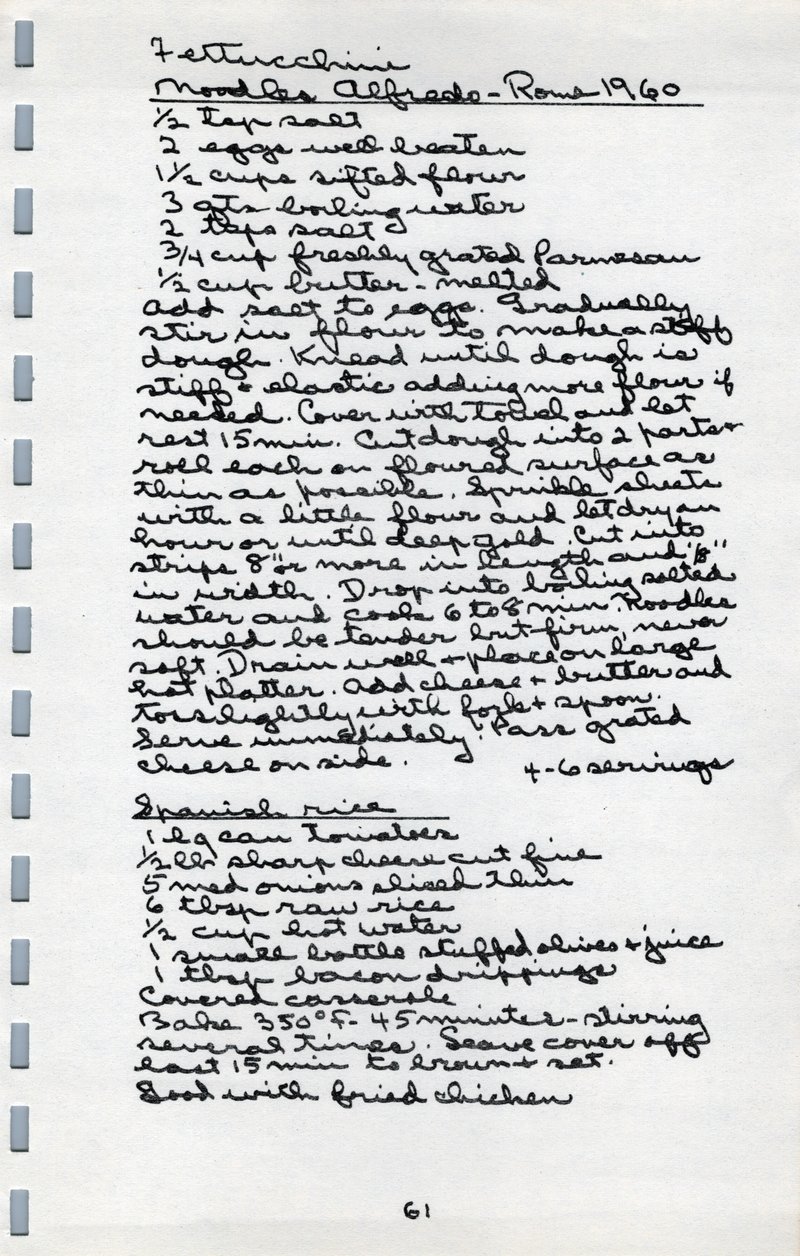 Fettucchini
Noodles Alfredo - Rome 1960
1/2 tsp salt
2 eggs well beaten
1 1/2 cups sifted flour
3 qts boiling water
2 tsps salt
3/4 cup freshly grated Parmesan
1/2 cup butter - melted
Add salt to eggs. Gradually
stir in flour to make a stiff
dough. Knead until dough is
stiff + elastic adding more flour if
needed. Cover with towel and let
rest 15 min. Cut dough into 2 parts +
roll each on floured surface as
thin as possible. Sprinkle sheets
with a little flour and let dry an
hour or until deep gold. Cut into
strips 8" or more in length and 1/8"
in width. Drop into boiling salted
water and cook 6 to 8 min. Noodles
should be tender but firm, never
soft. Drain well + place on large
hot platter. Add cheese + butter and
toss lightly with fork + spoon.
Serve immediately! Pass grated
cheese on side.
4-6 servings
Spanish rice
1 lg can tomatoes
1/2 lb sharp cheese cut fine
5 med onions sliced thin
6 tbsp raw rice
1/2 cup hot water
1 small bottle stuffed olives + juice
1 tbsp bacon drippings
Covered casserole
Bake 350°F - 45 minutes - stirring
several times. Leave cover off
last 15 min to brown + set.
Good with fried chicken
61